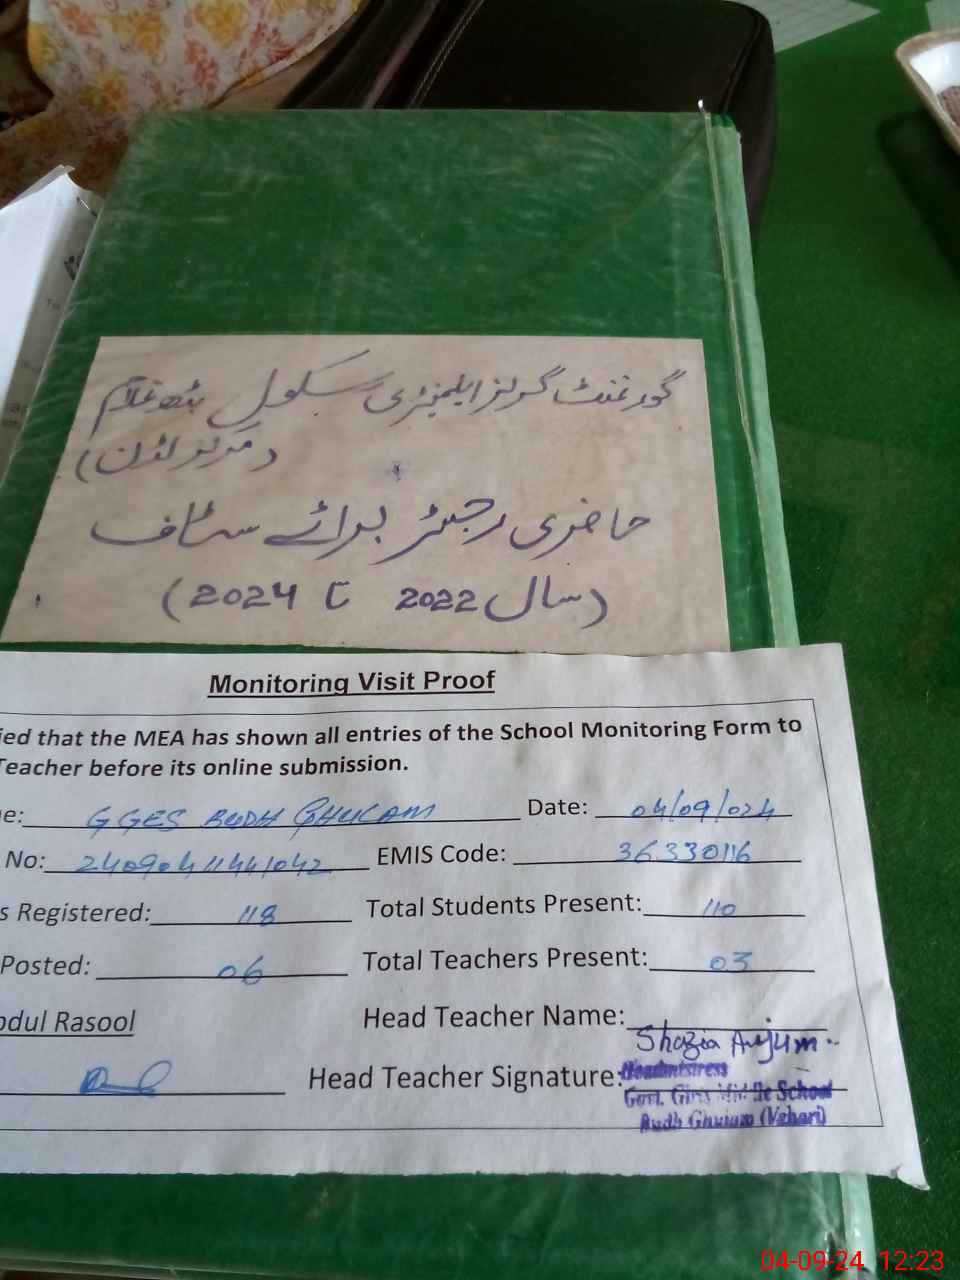 گورنمنٹ گرلز ایلیمنٹری سکول بڈھ غلام
(مرکز لڈن)
حاضری رجسٹر برائے سٹاف
(سال 2022 تا 2024)
Monitoring Visit Proof
ied that the MEA has shown all entries of the School Monitoring Form to
Teacher before its online submission.
e: GGES BUDH GHULAM Date: 04/09/024
No: 24090411441042 EMIS Code: 36330116
s Registered: 118 Total Students Present: 110
Posted: 06 Total Teachers Present: 03
bdul Rasool Head Teacher Name: Shazia Anjum
Head Teacher Signature: Headmistress
Govt. Girls Middle School
Budh Ghulam (Vehari)
04-09-24 12:23